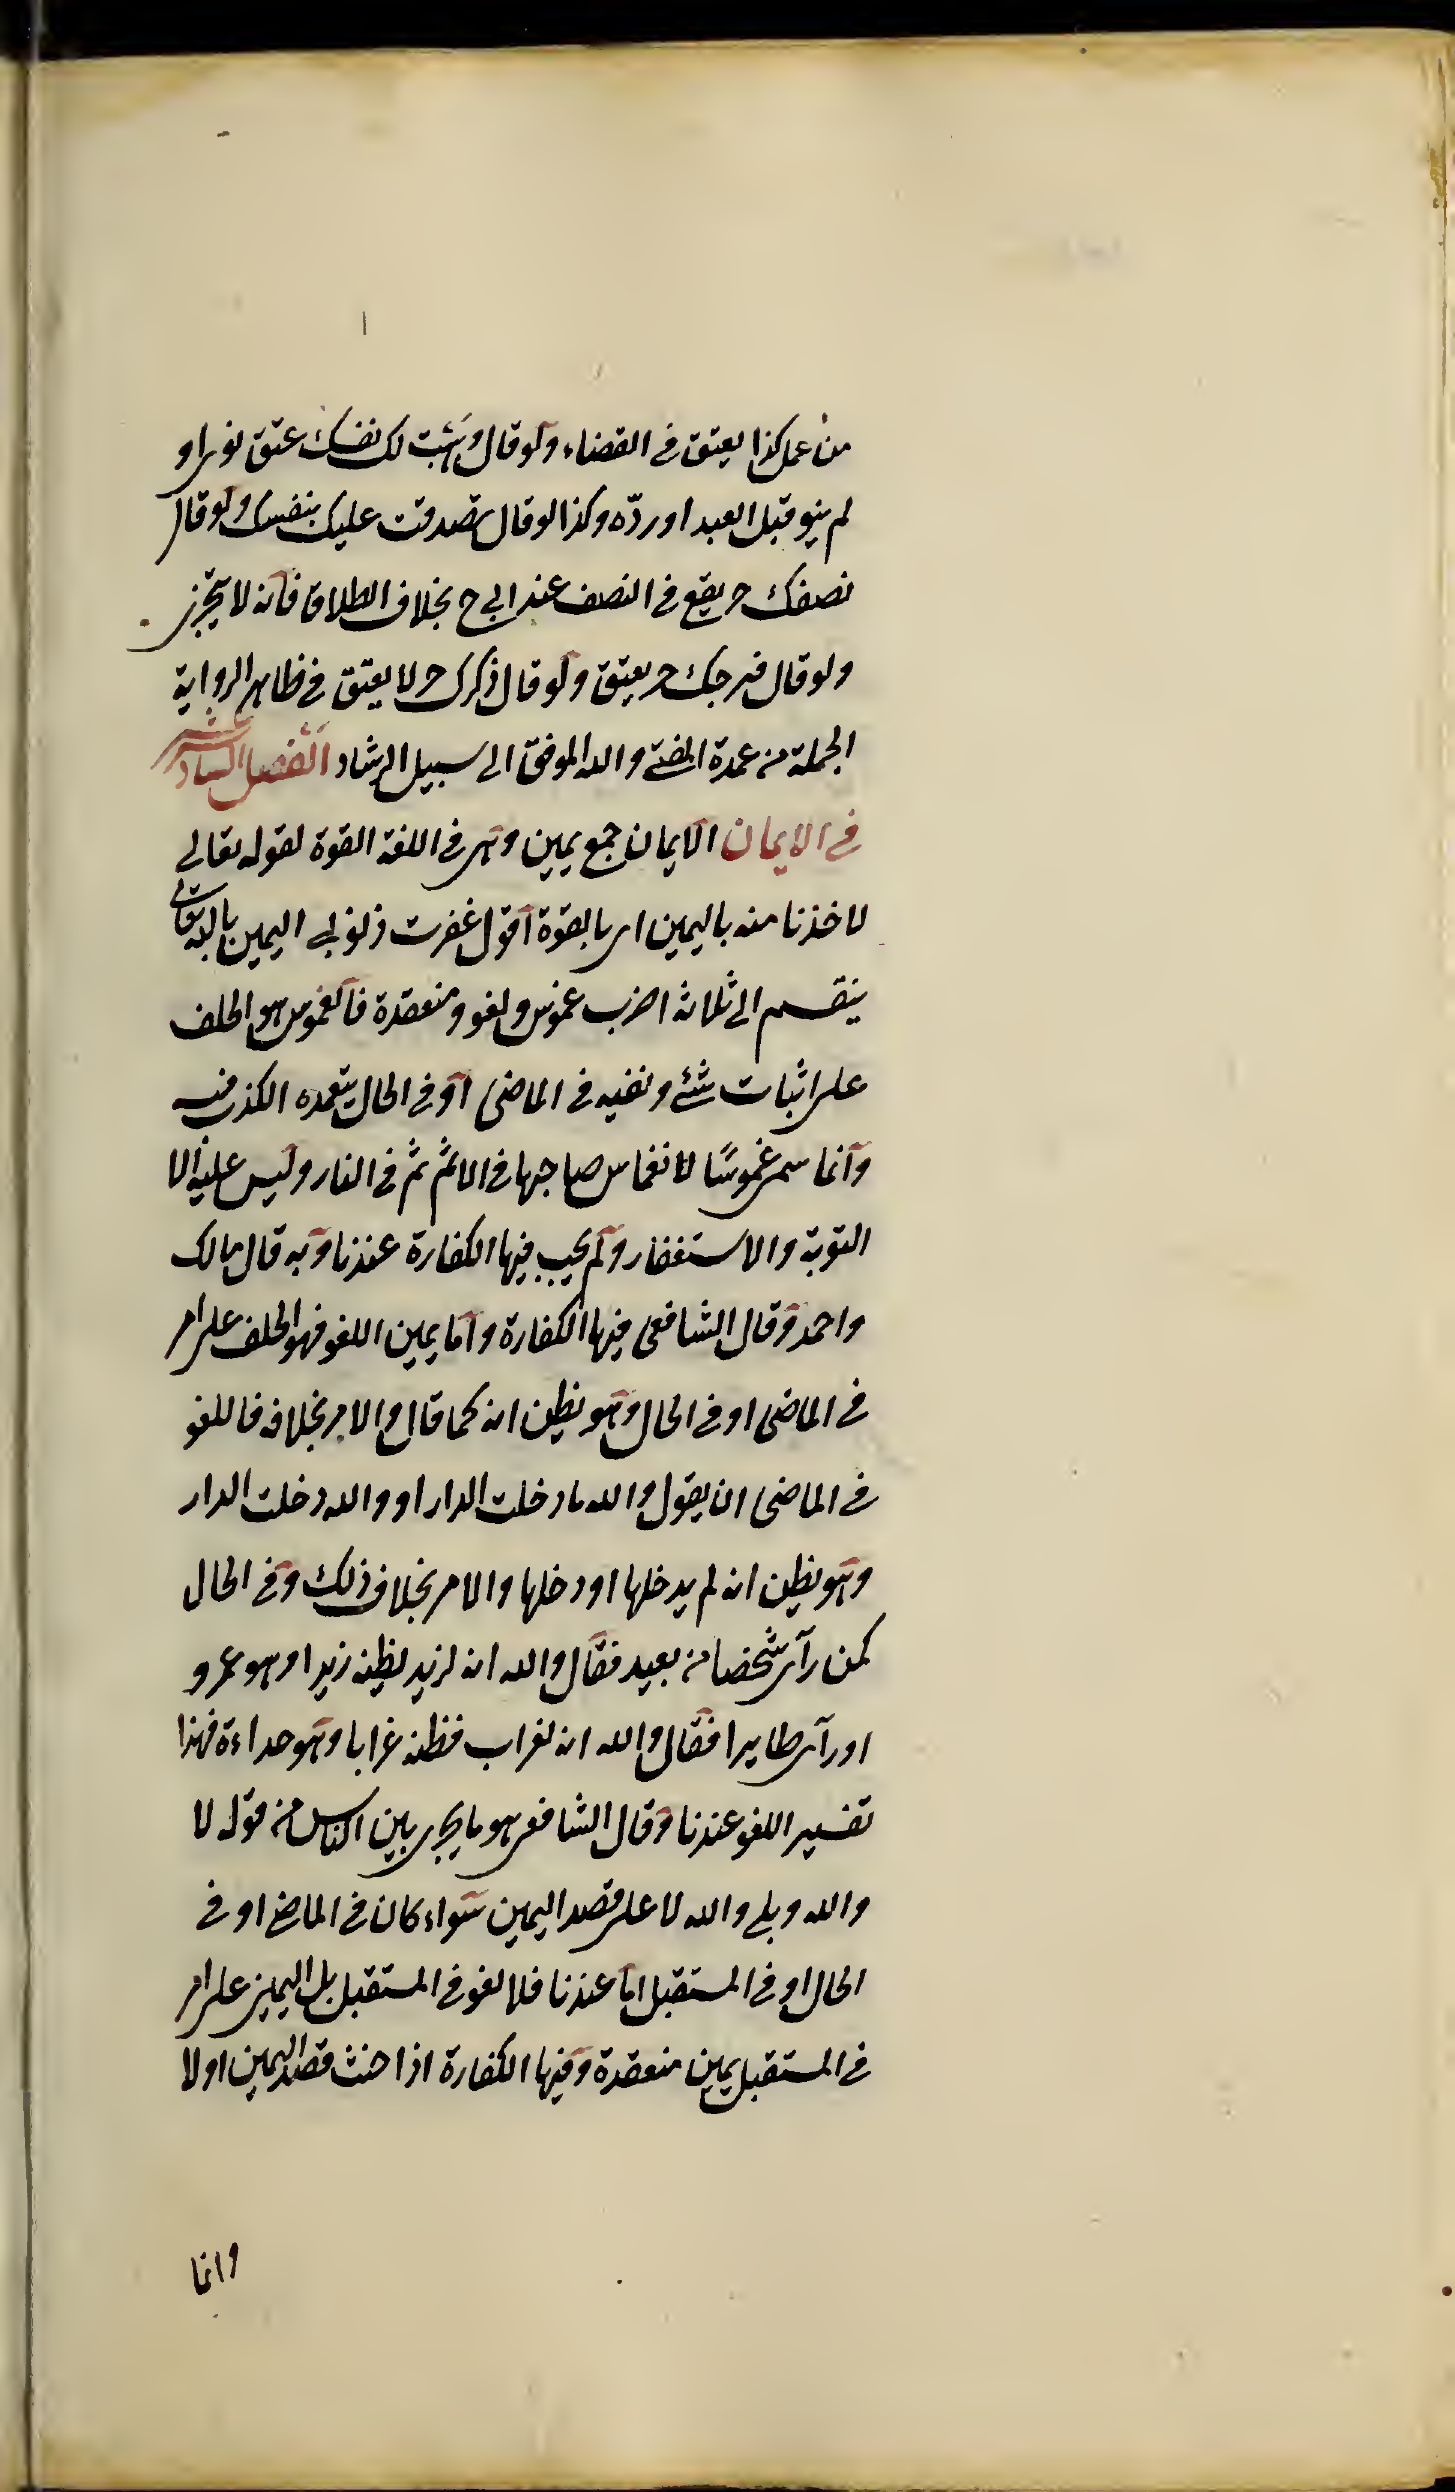 من عمل كذا يعتق فى القضاء ولو قال وهبت لك نفسك عتق نوى او
لم ينو قبل العبد اورده وكذا لو قال تصدقت عليك بنفسك ولو قال
نصفك حر يقع فى النصف عند ابى ح بخلاف الطلاق فانه لا يتجزى
ولو قال فرجك حر يعتق ولو قال ذكرك حر لا يعتق فى ظاهر الرواية
الجملة من عمدة المفتى والله الموفق الى سبيل الرشاد الفصل السادس عشر
فى الايمان الايمان جمع يمين وهى فى اللغة القوة لقوله تعالى
لاخذنا منه باليمين اى بالقوة اقول غفرت ذنوبى اليمين بالله تعالى
ينقسم الى ثلاثة اضرب غموس ولغو ومنعقدة فالغموس هو الحلف
على اثبات شئ ونفيه فى الماضى او فى الحال يتعمده الكذب فيه
وانما سمى غموسًا لانغماس صاحبها فى الاثم ثم فى النار وليس عليه الا
التوبة والاستغفار ولم يجب فيها الكفارة عندنا وبه قال مالك
واحمد وقال الشافعى فيها الكفارة واما يمين اللغو فهو الحلف على امر
فى الماضى او فى الحال وهو يظن انه كما قال والامر بخلافه فاللغو
فى الماضى ان يقول والله ما دخلت الدار او والله دخلت الدار
وهو يظن انه لم يدخلها او دخلها والامر بخلاف ذلك وفى الحال
كمن رآى شخصا من بعيد فقال والله انه لزيد يظنه زيدا وهو عمرو
او رآى طايرا فقال والله انه لغراب فظنه غرابا وهو حداءة فهذا
تفسير اللغو عندنا وقال الشافعى هو ما يجرى بين الناس من قوله لا
والله وبلى والله لا على قصد اليمين سواء كان فى الماضى او فى
الحال او فى المستقبل اما عندنا فلا لغو فى المستقبل بل اليمين على امر
فى المستقبل يمين منعقدة وفيها الكفارة اذا حنث قصد اليمين او لا
وانما